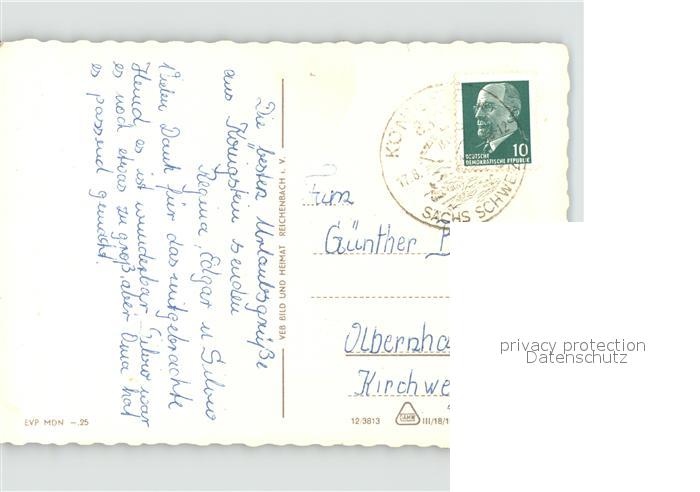 Die besten Urlaubsgrüße
aus Königstein senden
Regina, Edgar u Silvio
Vielen Dank für das mitgebrachte
Hemd es ist wunderbar. Silvio war
es noch etwas zu groß, aber Oma hat
es passend gemacht
VEB BILD UND HEIMAT REICHENBACH i. V.
EVP MDN –.25
SÄCHS SCHWEIZ
17.8.
10
DEUTSCHE
DEMOKRATISCHE REPUBLIK
Fam
Günther
Olbernha
Kirchwe
12/3813
III/18/1
privacy protection
Datenschutz